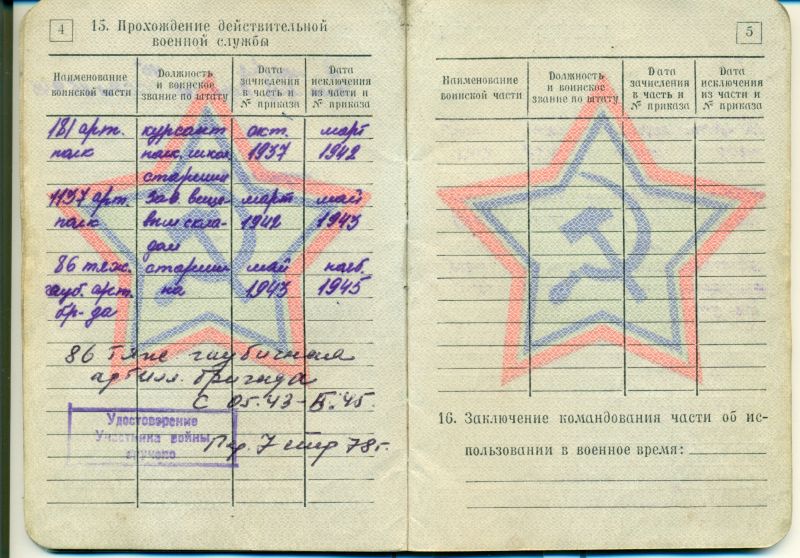 4
15. Прохождение действительной
военной службы
Наименование
воинской части
Должность
и воинское
звание по штату
Дата
зачисления
в часть и
№ приказа
Дата
исключения
из части и
№ приказа
181 арт. курсант окт. март
полк полк. школ 1937 1942
старшин
1137 арт. зав. веще- март май
полк вым скла- 1942 1943
дом
86 тяж. старши- май нояб.
гауб. арт. на 1943 1945
бр-да
86 тяж гаубичная
артилл. бригада
с 05.43
Удостоверение
Участника войны
вручено
78г.
5
Наименование
воинской части
Должность
и воинское
звание по штату
Дата
зачисления
в часть и
№ приказа
Дата
исключения
из части и
№ приказа
16. Заключение командования части об ис-
пользовании в военное время: